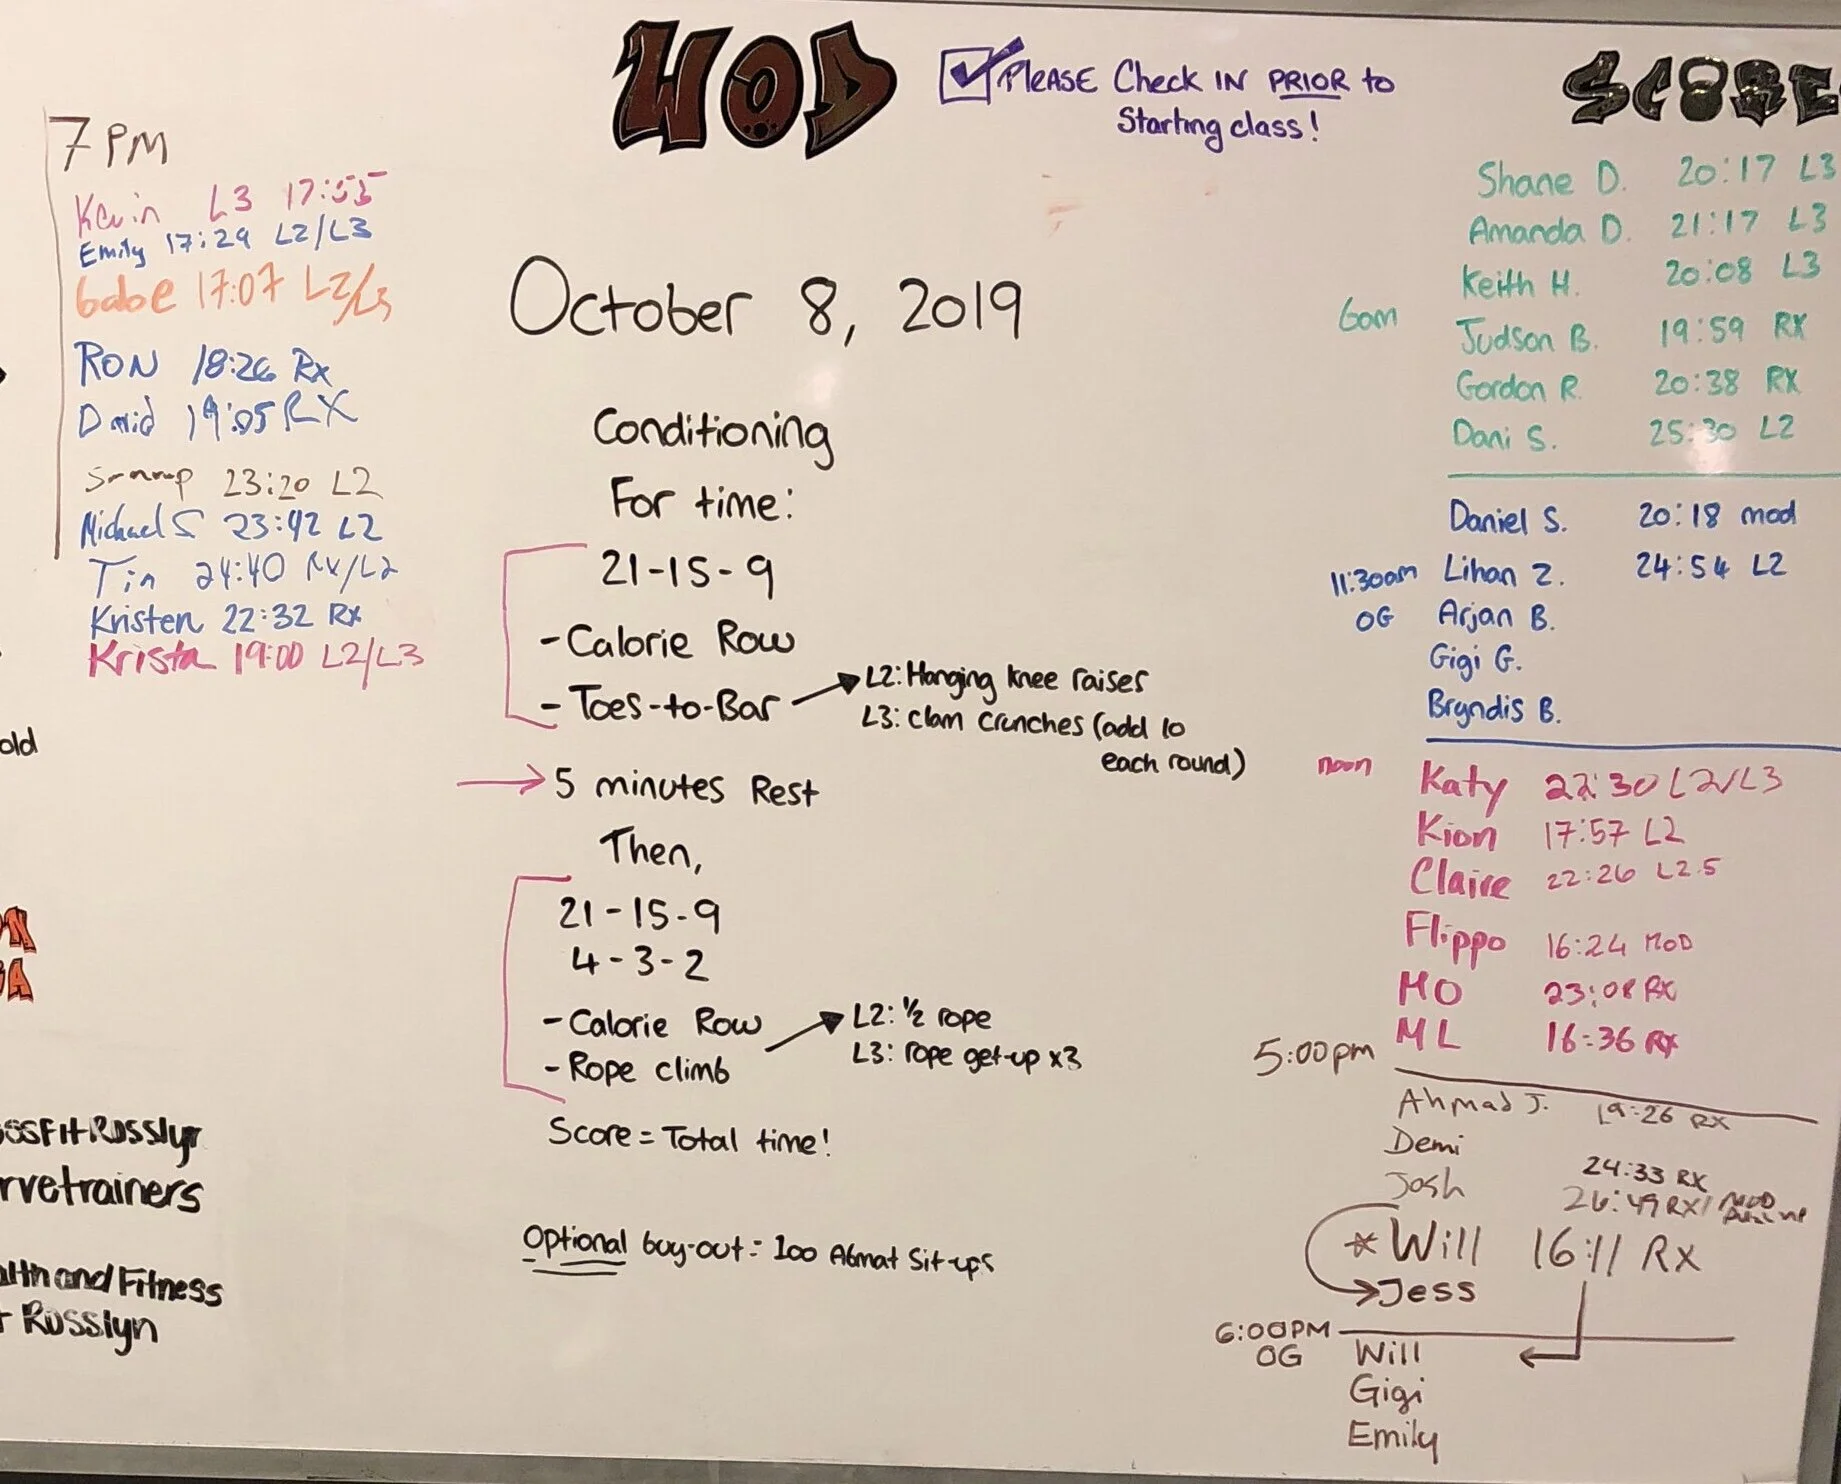 WOD
PLEASE Check IN PRIOR to
Starting class!
SCORE
7 PM
Kevin L3 17:55
Emily 17:29 L2/L3
Gabe 17:07 L2/L3
RON 18:26 Rx
David 19:05 RX
23:20 L2
Michael S 23:42 L2
Tin 24:40 Rx/L2
Kristen 22:32 Rx
Krista 19:00 L2/L3
old
ON
GA
ossFitRosslyn
rvetrainers
alth and Fitness
t Rosslyn
October 8, 2019
Conditioning
For time:
21-15-9
- Calorie Row
- Toes-to-Bar
L2: Hanging knee raises
L3: clam crunches (add 10
each round)
5 minutes Rest
Then,
21-15-9
4-3-2
- Calorie Row
- Rope climb
L2: 1/2 rope
L3: rope get-up x3
Score = Total time!
Optional buy-out = 100 Abmat Sit-ups
6am
Shane D. 20:17 L3
Amanda D. 21:17 L3
Keith H. 20:08 L3
Judson B. 19:59 RX
Gordon R. 20:38 RX
Dani S. 25:30 L2
11:30am
OG
Daniel S. 20:18 mod
Lihan Z. 24:54 L2
Arjan B.
Gigi G.
Bryndis B.
noon
Katy 22:30 L2/L3
Kion 17:57 L2
Claire 22:26 L2.5
Flippo 16:24 MOD
MO 23:08 RX
ML 16:36 RX
5:00pm
Ahmad J. 19:26 RX
Demi 24:33 RX
Josh 26:49 RX/ MOD
* Will 16:11 RX
Jess
6:00PM
OG
Will
Gigi
Emily